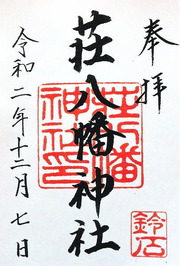 奉拝
荘八幡神社
荘八幡
神社印
鈴石
令和二年十二月七日